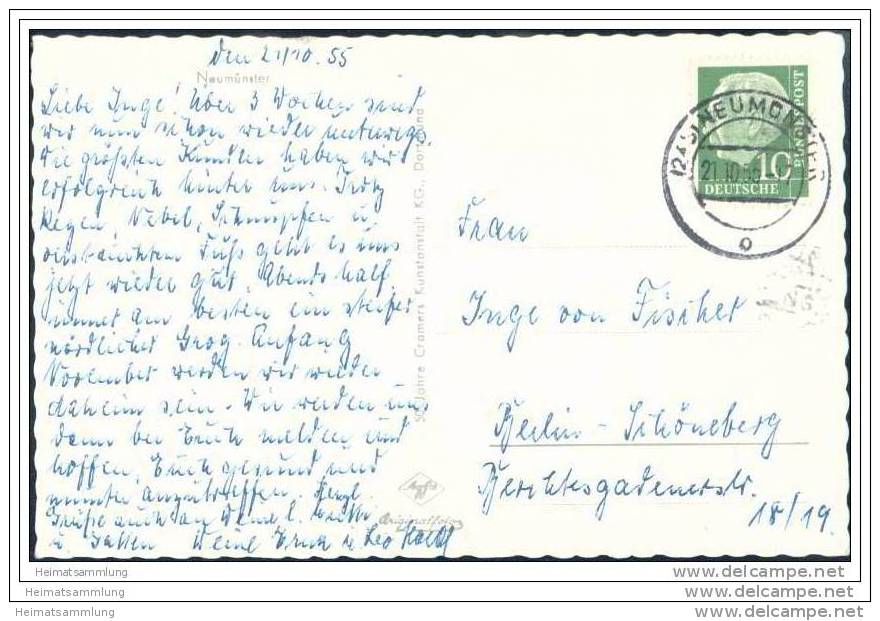 den 21/10.55
Neumünster
Liebe Inge! Über 3 Wochen sind
wir nun schon wieder unterwegs.
Die größten Kunden haben wir
erfolgreich hinter uns. Trotz
Regen, Nebel, Schnupfen u.
verstauchtem Fuß geht es uns
jetzt wieder gut. Abends half
immer am besten ein steifer
nördlicher Grog. Anfang
November werden wir wieder
daheim sein. Wir werden uns
dann bei Euch melden und
hoffen, Euch gesund und
munter anzutreffen. Herzl.
Grüße auch an Deine l. Mutter
u. Gatten Deine Erna u. Leo
50 Jahre Cramers Kunstanstalt KG., Dortmund
Agfa
Originalfoto
NEUMÜNSTER
21.10.55
10
BUNDESPOST
DEUTSCHE
Frau
Inge von Fischer
Berlin-Schöneberg
Berchtesgadenerstr.
18/19.
Heimatsammlung
Heimatsammlung
Heimatsammlung
www.delcampe.net
www.delcampe.net
www.delcampe.net